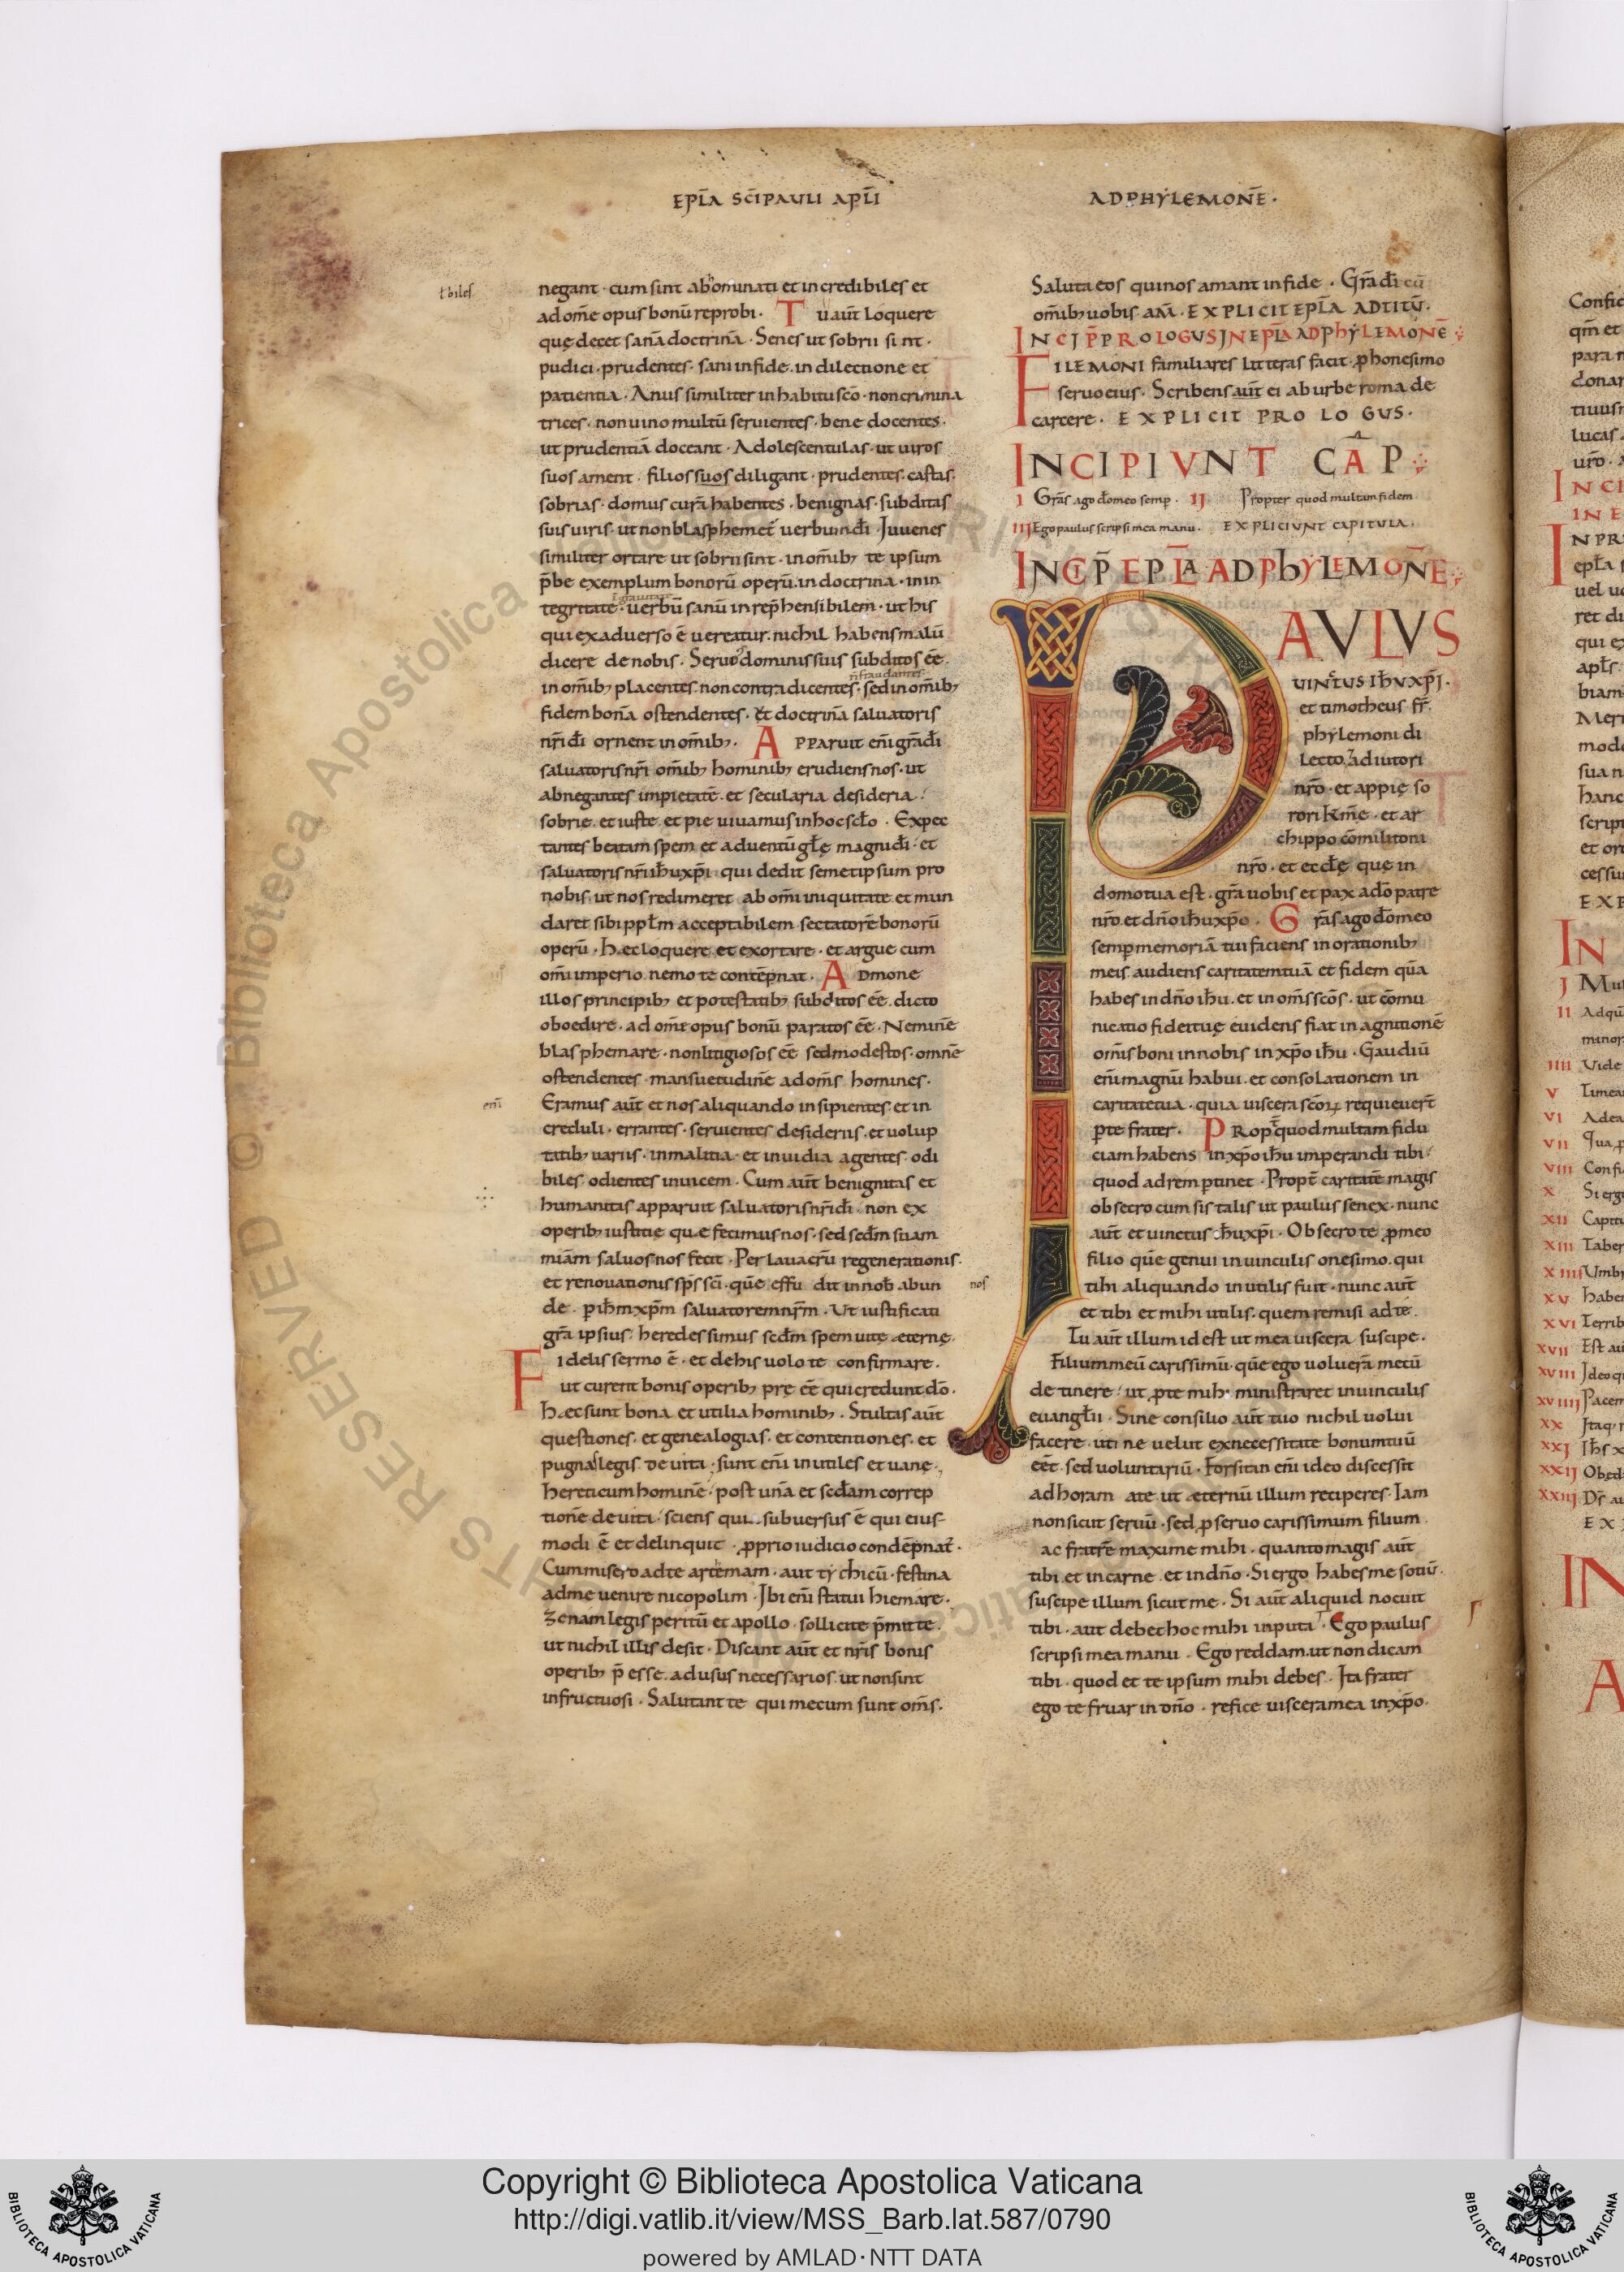 EPL̄A SC̄I PAULI APL̄I
ADPHYLEMONĒ.
negant · cum sint abominati et incredibiles et
ł biles
ad om̄e opus bonū reprobi . Tu aūt loquere
quę decet sanā doctrinā . Senes ut sobrii sint .
pudici . prudentes . sani in fide . in dilectione et
patientia . Anus similiter in habitu sc̄o . non crimina
trices . non uino multū seruientes . bene docentes .
ut prudentiā doceant . Adolescentulas . ut uiros
suos ament . filios suos diligant . prudentes . castas .
sobrias . domus curā habentes . benignas . subditas
suis uiris . ut non blasphemet̄ uerbum dī . Juuenes
similiter ortare ut sobrii sint . in om̄ib; te ipsum
p̄be exemplum bonorū operū . in doctrina . in in
tegritate . uerbū sanū inrep̄hensibilem . ut his
qui ex aduerso ē uereatur . nichil habens malū
dicere de nobis . Seruos dominis suis subditos eē
in om̄ib; placentes . non contradicentes . sed in om̄ib;
n̄ fraudantes
fidem bonā ostendentes . et doctrinā saluatoris
nr̄i dī ornent in om̄ib; . Apparuit eni grā dī
saluatoris nr̄i om̄ib; hominib; erudiens nos . ut
abnegantes impietatē . et secularia desideria .
sobrie . et iuste . et pie uiuamus in hoc scł̄o . Expec
tantes beatam spem et aduentū gł̄ę magni dī . et
saluatoris nr̄i ih̄u xp̄i qui dedit semetipsum pro
nobis . ut nos redimeret ab om̄i iniquitate et mun
daret sibi ppl̄m acceptabilem sectatorē bonorū
operū . Hęc loquere et exortare . et argue cum
om̄i imperio . nemo te contēpnat . Admone
illos principib; et potestatib; subditos eē . dicto
oboedire . ad om̄e opus bonū paratos eē . Neminē
blasphemare . non litigiosos eē sed modestos . omnē
ostendentes mansuetudinē ad om̄s homines .
enī
Eramus aūt et nos aliquando insipientes et in
creduli . errantes . seruientes desideriis . et uolup
tatib; uariis . in malitia . et inuidia agentes odi
biles . odientes inuicem . Cum aūt benignitas et
humanitas apparuit saluatoris nr̄i dī . non ex
operib; iustitię quę fecimus nos . sed sedm̄ suam
miām saluos nos fecit . Per lauacrū regenerationis .
et renouationis sp̄s sc̄i . quē effudit in nob̄ abun
nos
de . p ih̄m xp̄m saluatorem nr̄m . Ut iustificati
grā ipsius heredes simus sedm̄ spem uitę æternę .
Fidelis sermo ē . et de his uolo te confirmare .
ut curent bonis operib; pręeē qui credunt dō .
Hęc sunt bona et utilia hominib; . Stultas aūt
questiones . et genealogias . et contentiones . et
pugnas legis deuita . sunt eni inutiles et uanę .
hereticum hominē . post unā et sedam̄ correp
tionē deuita . sciens quia subuersus ē qui eius
modi ē et delinquit . pprio iudicio condēpnat̄ .
Cum misero ad te artemam . aut tychicū . festina
ad me uenire nicopolim . Ibi eni statui hiemare .
Zenam legis peritū et apollo . sollicite p̄mitte .
ut nichil illis desit . Discant aūt et nr̄is bonis
operib; p̄esse . ad usus necessarios . ut non sint
infructuosi . Salutant te qui mecum sunt om̄s .
Saluta eos qui nos amant in fide . Grā dī cū
om̄ib; uobis am̄ . EXPLICIT EPL̄A AD TITŪ .
INCIP̄ PROLOGUS IN EPL̄A ADPHYLEMONĒ
FILEMONI familiares litteras facit . p honesimo
seruo eius . Scribens aūt ei ab urbe roma de
carcere . EXPLICIT PROLOGUS .
INCIPIVNT CAP
I Grās ago dō meo semp . II Propter quod multam fidem
III Ego paulus scripsi mea manu . EXPLICIVNT CAPITULA .
INCIP̄ EPL̄A ADPHYLEMOÑE
PAVLVS
UINCTUS IH̄V XP̄I .
et timotheus fr̄ .
phylemoni di
lecto . adiutori
nr̄o . et appię so
rori k̄mę . et ar
chippo cōmilitoni
nr̄o . et eccl̄ę quę in
domo tua est . grā uobis et pax a dō patre
nr̄o et dn̄o ih̄u xp̄o . Grās ago dō meo
semp memoriā tui faciens in orationib;
meis audiens caritatem tuā et fidem quā
habes in dn̄o ih̄u . et in om̄s sc̄os . ut cōmu
nicatio fidei tuę euidens fiat in agnitionē
om̄is boni in nobis in xp̄o ih̄u . Gaudiū
eni magnū habui . et consolationem in
caritate tua . quia uiscera sc̄oꝝ requieuer̄t
p te frater . Propt̄ quod multam fidu
ciam habens in xp̄o ih̄u imperandi tibi
quod ad rem ptinet . Propt̄ caritatē magis
obsecro cum sis talis ut paulus senex . nunc
aūt et uinctus ih̄u xp̄i . Obsecro te p meo
filio quē genui in uinculis onesimo . qui
tibi aliquando inutilis fuit . nunc aūt
et tibi et mihi utilis . quem remisi ad te .
Tu aūt illum id est ut mea uiscera suscipe .
Filium meū carissimū . quē ego uoluerā mecū
detinere . ut p te mihi ministraret in uinculis
euangl̄ii . Sine consilio aūt tuo nichil uolui
facere . uti ne uelut ex necessitate bonum tuū
eēt . sed uoluntariū . Forsitan eni ideo discessit
ad horam a te . ut æternū illum reciperes . Iam
non sicut seruū . sed p seruo carissimum filium
ac fratrē maxime mihi . quanto magis aūt
tibi . et in carne . et in dn̄o . Si ergo habes me sotiū .
suscipe illum sicut me . Si aūt aliquid nocuit
tibi . aut debet hoc mihi inputa . Ego paulus
scripsi mea manu . Ego reddam . ut non dicam
tibi . quod et te ipsum mihi debes . Ita frater
ego te fruar in dn̄o . refice uiscera mea in xp̄o .
Copyright © Biblioteca Apostolica Vaticana
http://digi.vatlib.it/view/MSS_Barb.lat.587/0790
powered by AMLAD · NTT DATA
BIBLIOTECA APOSTOLICA VATICANA
BIBLIOTECA APOSTOLICA VATICANA